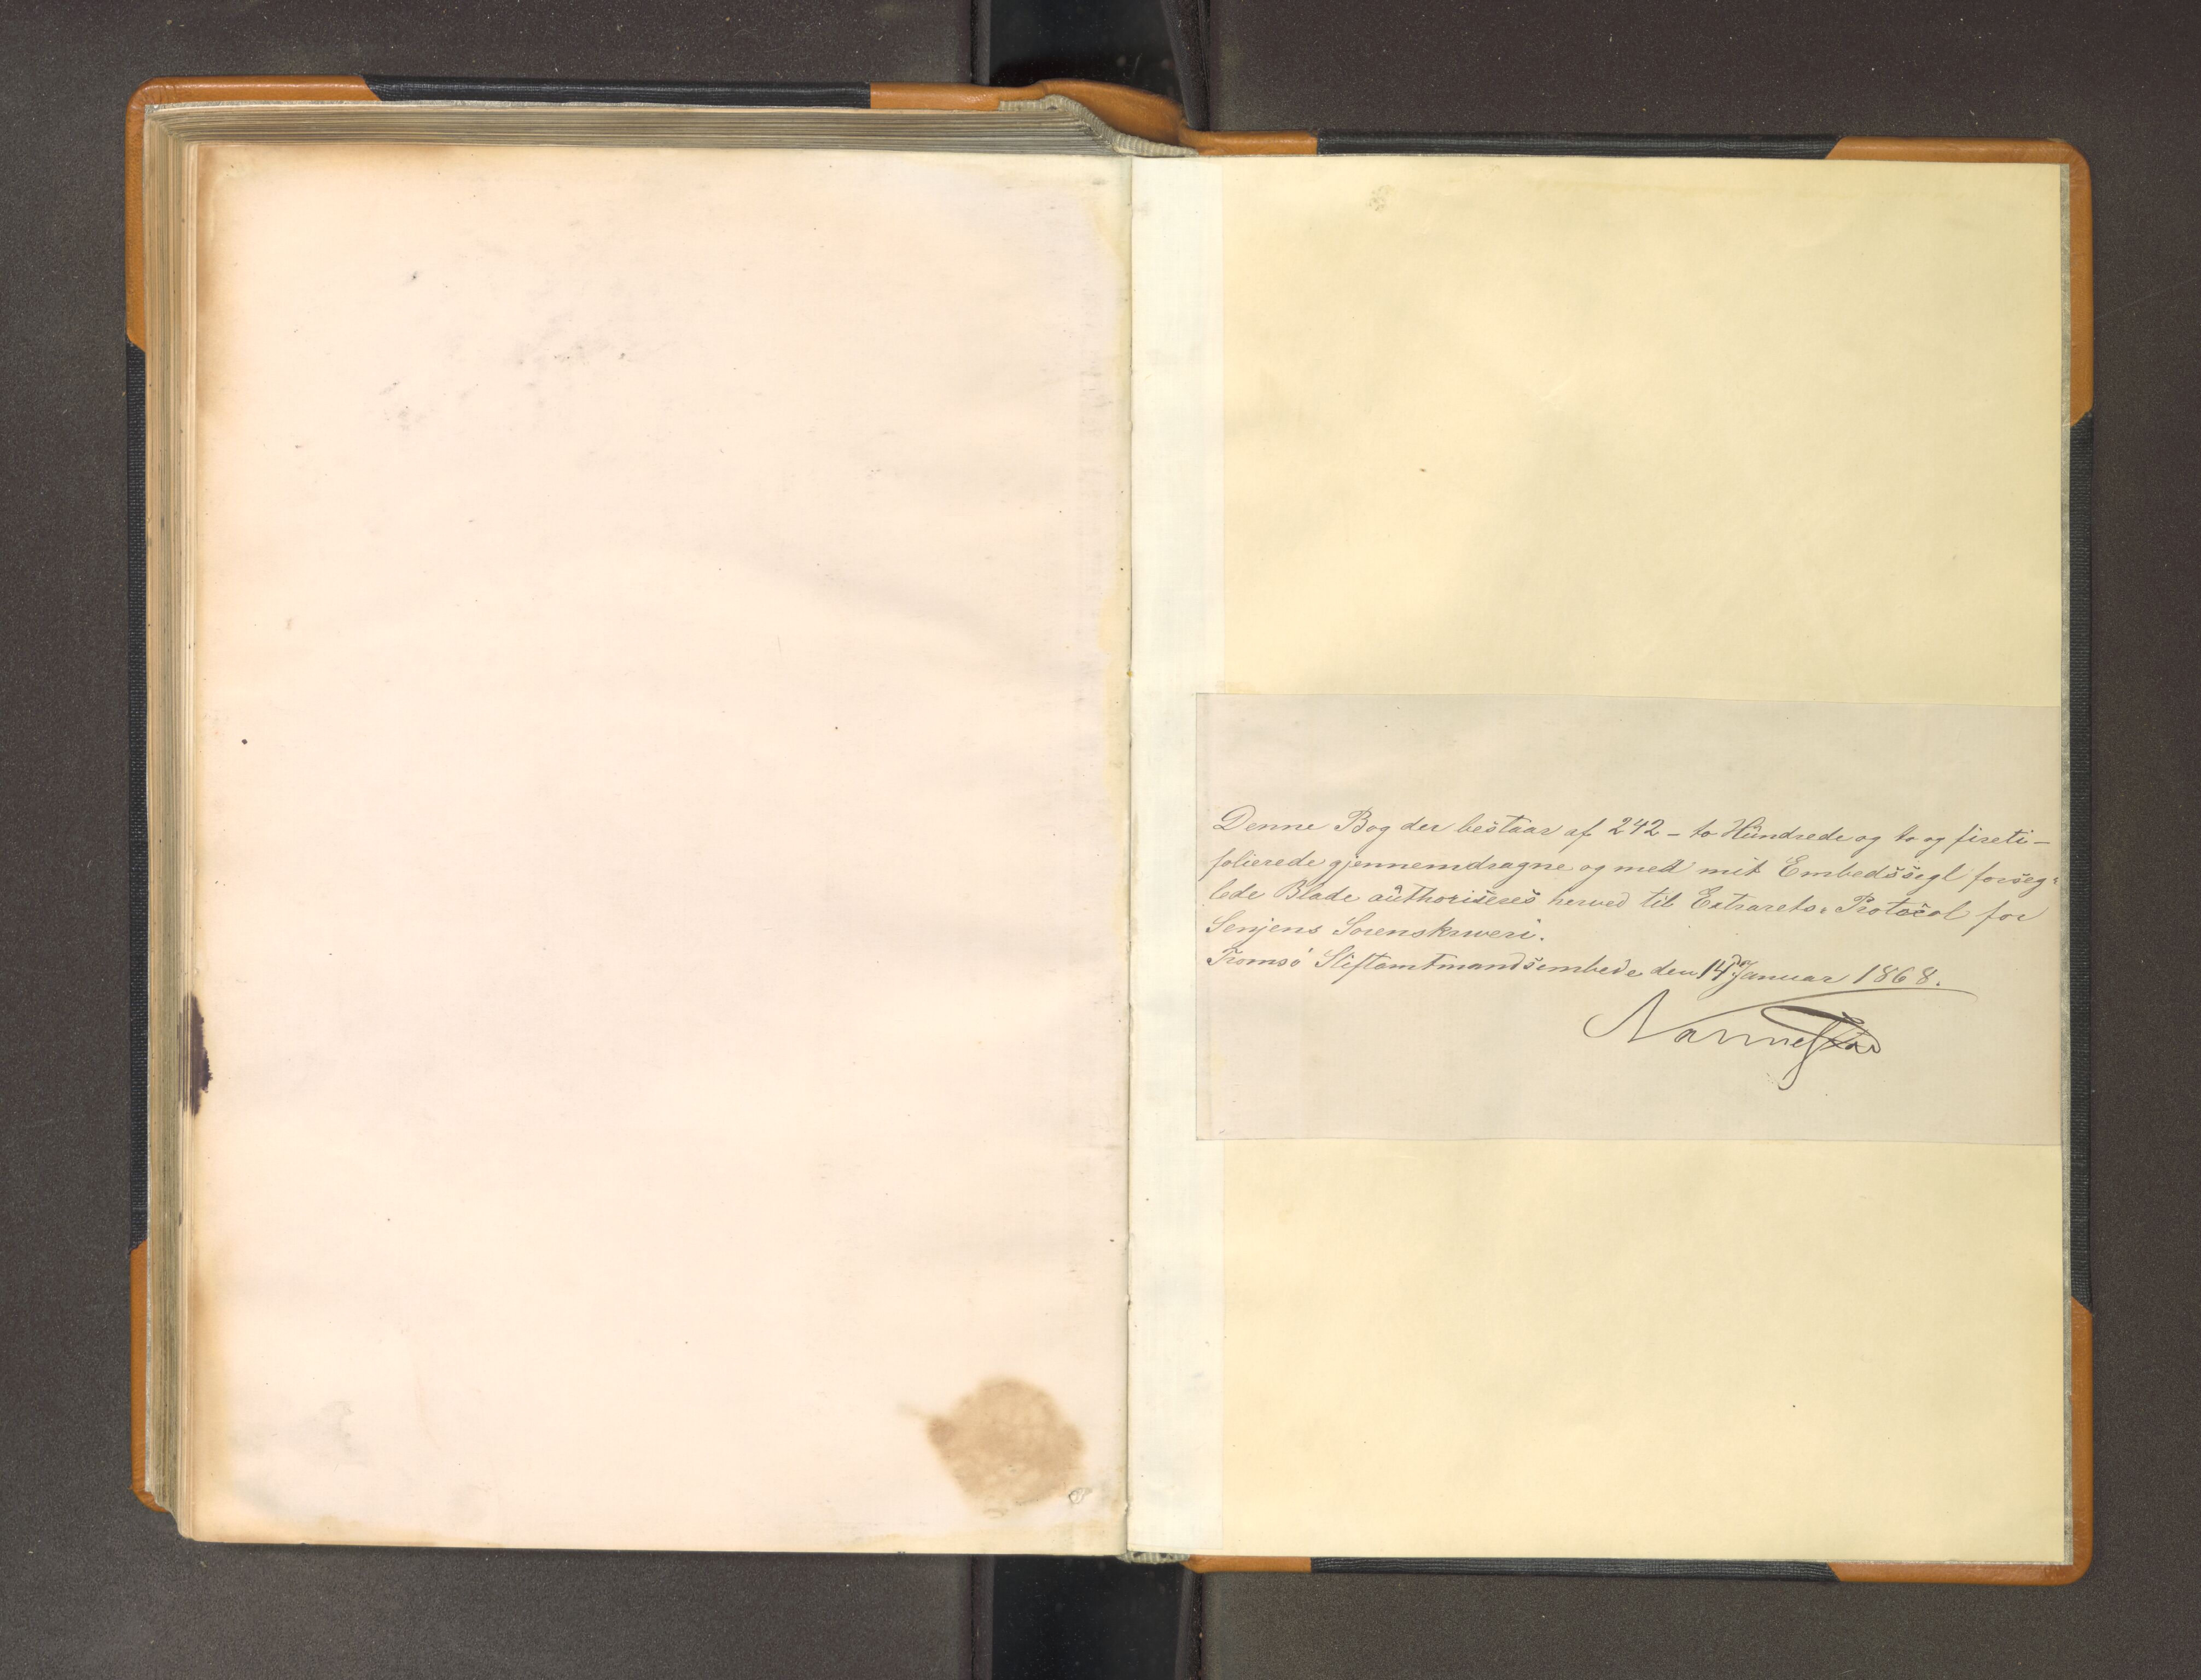 Denne Bog der bestaar af 242 - to Hundrede og to og fireti -
folierede gjennemdragne og med mit Embedssegl forseg-
lede Blade authoriseres herved til Extrarets-Protocol for
Senjens Sorenskriveri.
Tromsö Stiftamtmandsembede den 14de Januar 1868.
Nannestad